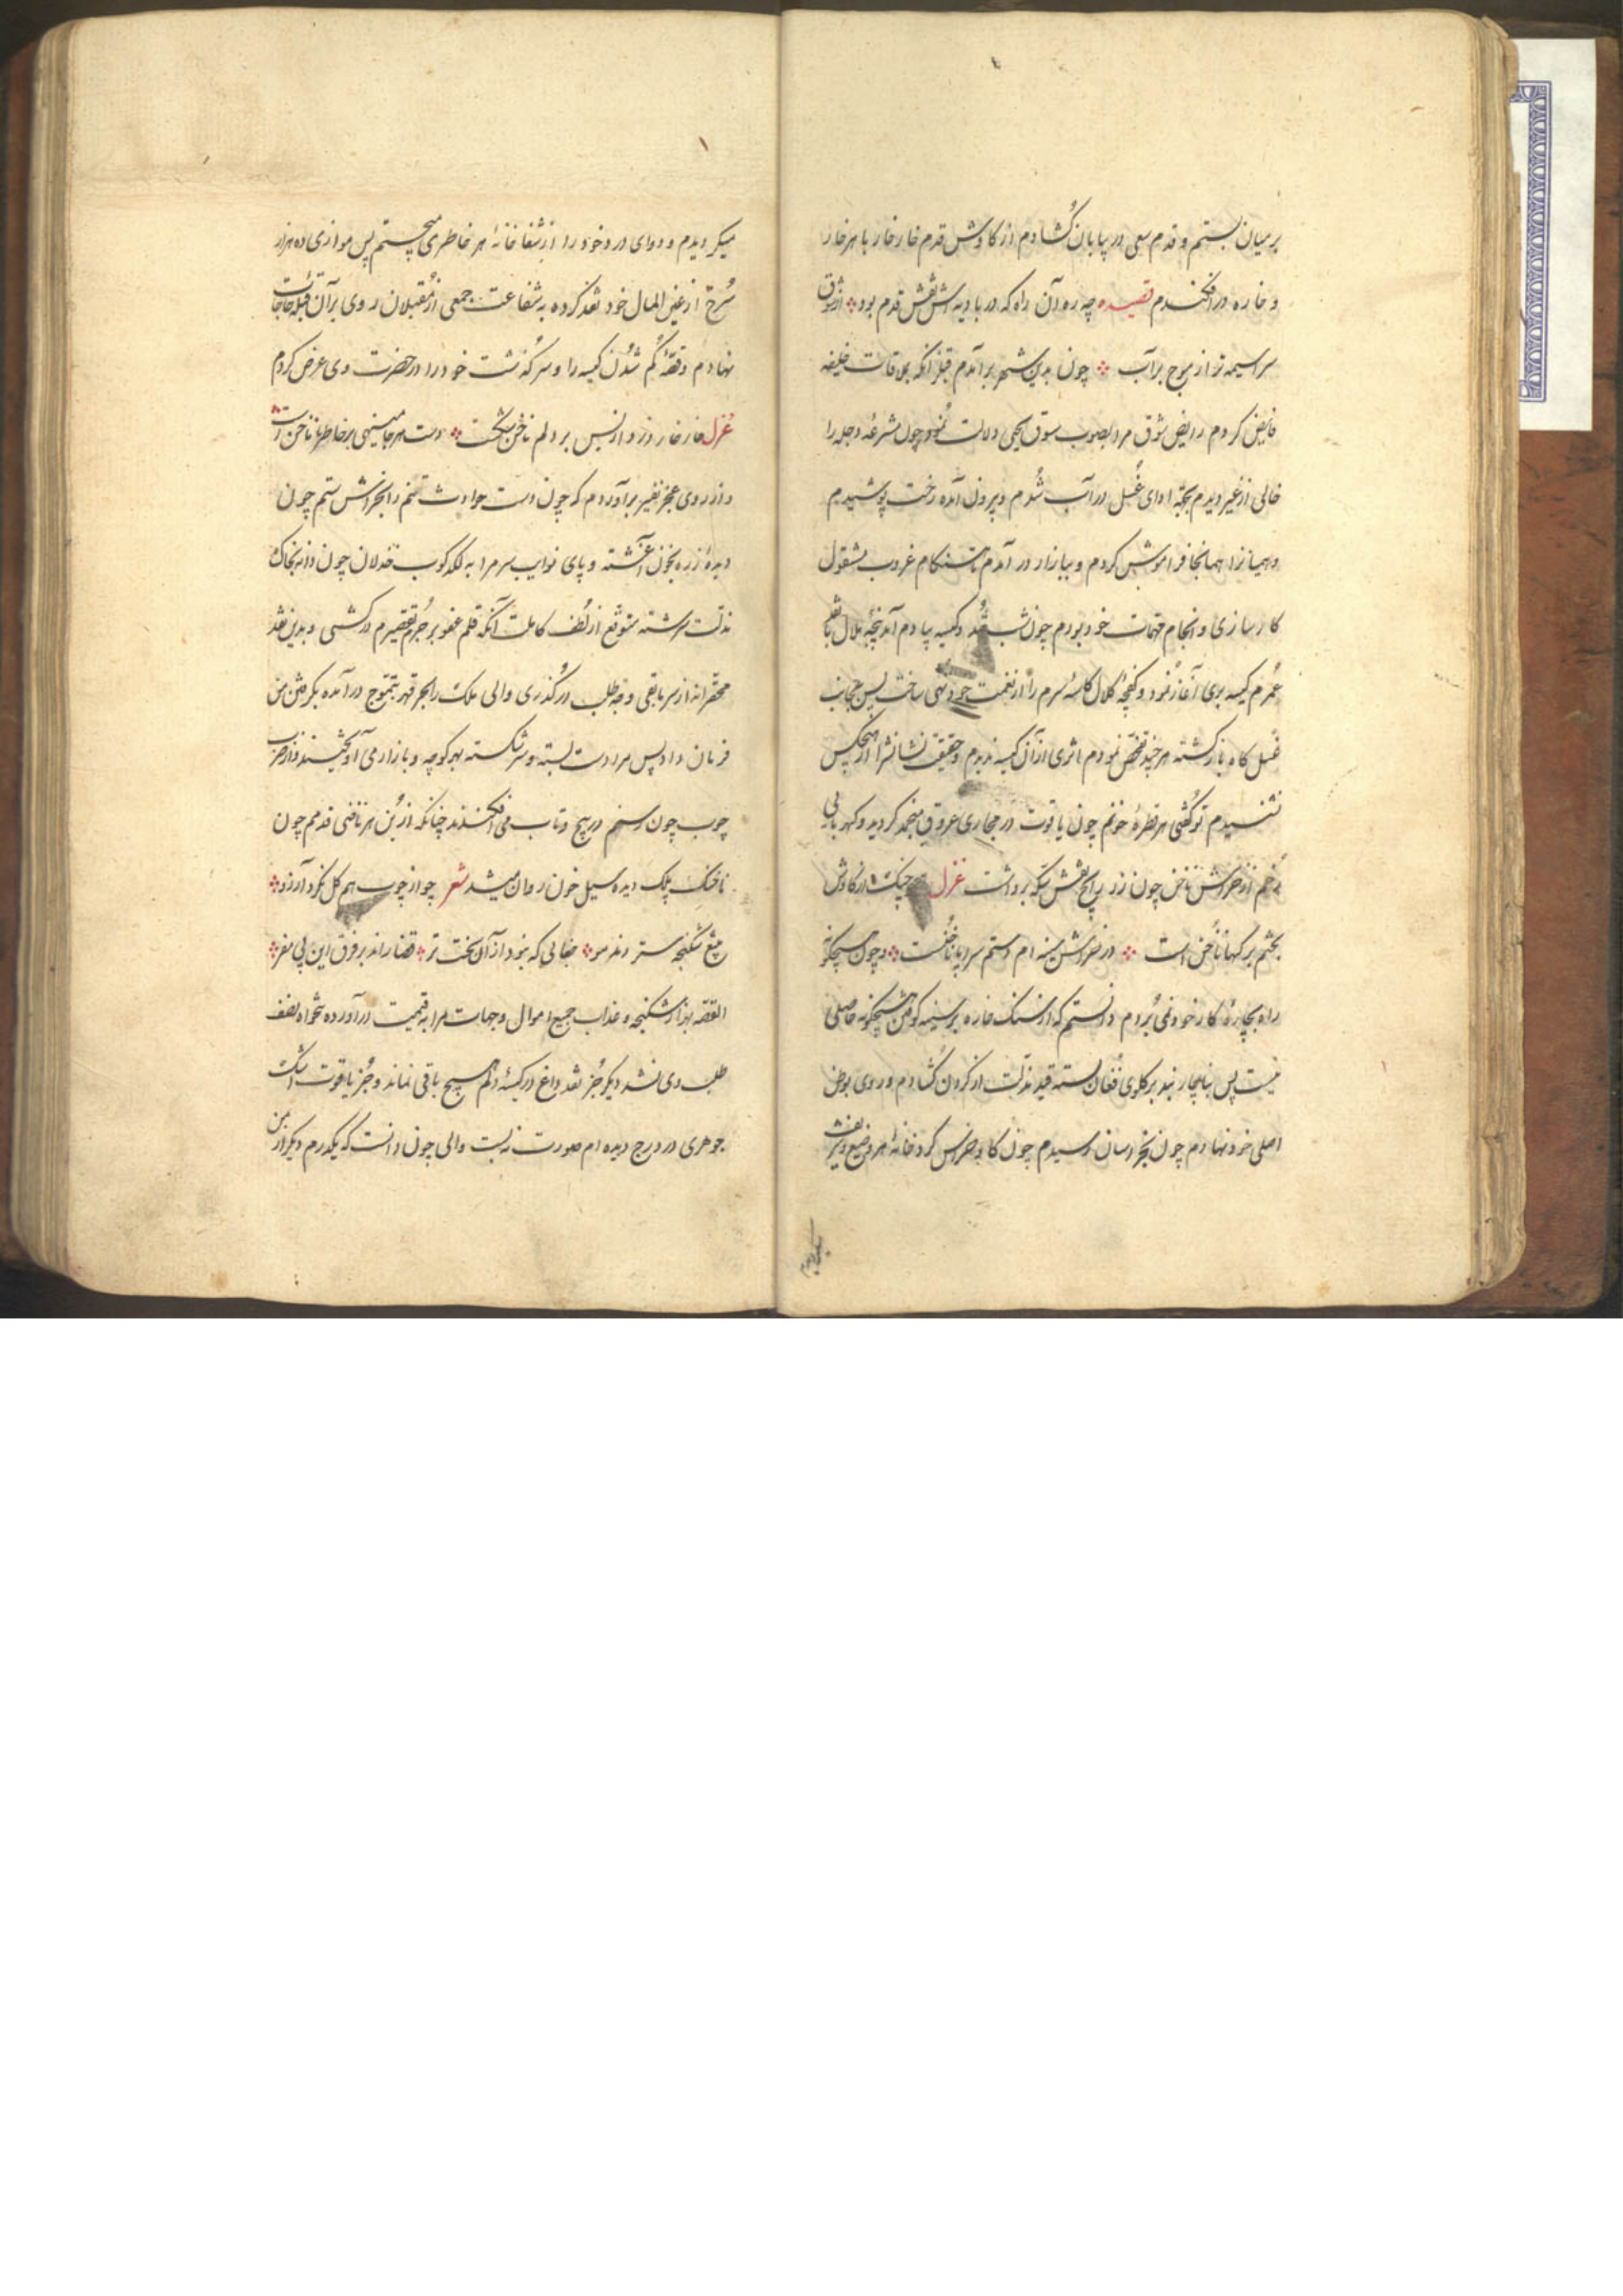 بر میان بستم و قدم سعی در بیابان گشادم از کاوش قدم خار خار با هر خار
و خاره در افکندم قصیده چه ره آن راه که در بادیه اش نقش قدم بود از شوق
سراسیمه تر از موج بر آب چون بدین شهر بر آمدم قبل از آنکه بملاقات خلیفه
فایض کردم رایض شوق مرا بصوب سوق یحیی دلالت نمود چون مشرعه دجله را
خالی از غیر دیدم بجهة ادای غسل در آب شدم و بیرون آمده رخت پوشیدم
و همیانرا همانجا فراموش کردم و ببازار در آمدم تا هنگام غروب مشغول
کارسازی و انجام مهمات خود بودم چون شب شد و کیسه بیادم آمد پنجهٔ هلال با نقد
عمرم کیسه بری آغاز نمود و کفچهٔ کلال کاسهٔ سرم را از نعمت خود تهی ساخت پس بجانب
غسل گاه باز گشته هر چند تفحص نمودم اثری از آن کیسه ندیدم و حقیقت نشانش را از هیچکس
نشنیدم تو گفتی هر قطرهٔ خونم چون یاقوت در مجاری عروق منجمد گردید و کهربای
رخم از خراش ناخن چون زر رایج نقش سکه برداشت غزل همچو چنگ از کاوش
بخشم بر گها ناخن است در خراش سینه ام دستم سراپا ناخنست و چون هیچگونه
راه بچارهٔ کار خود نمی بردم دانستم که از سنگ خاره بر سینه کوفتن هیچگونه حاصلی
نیست پس بناچار بند بر گلوی فغان بسته قید مذلت از گردن گشادم و روی بوطن
اصلی خود نهادم چون بخراسان رسیدم چون گاو خراس گرد خانهٔ هر وضیع و شریف
میگردیدم و دوای درد خود را از شفا خانهٔ هر خاطری میجستم پس موازی ده هزار
سرخ از عین المال خود نقد کرده به شفاعت جمعی از مقبلان روی بر آن قبلهٔ حاجات
نهادم و قصهٔ گم شدن کیسه را و سر گذشت خود را در حضرت وی عرض کردم
غزل خار خار روز و از بس بر دلم ناخن شکست دست هر جا مینهی بر خاطر ما ناخن است
و از روی عجز نفیر بر آوردم که چون دست حوادث تنم را بخراش ستم چون
دیدهٔ زره بخون آغشته و پای نوایب سرم را به لگد کوب خذلان چون دانه بخاک
مذلت سرشته متوقع از لطف کاملت آنکه قلم عفو بر جرم تقصیرم در کشی و بدین نقد
محقرانه از سر باقی وجه طلب در گذری والی ملک را بحر قهر بتموج در آمده بگرفتن من
فرمان داد پس مرا دست بسته و سر شکسته بهر کوچه و بازار می آویختند و از ضرب
چوب چون رسنم در پیچ و تاب می افکندند چنانکه از بن هر ناخن قدمم چون
ناخنک پلک دیده سیل خون روان میشد شعر چو از چوب هم کل نکرد آرزو
بتیغ شکنجه ستردند مو جفایی که نبود از آن سخت تر قضا راند بر فرق این پی سفر
القصه بهزار شکنجه و عذاب جمیع اموال و جهات مرا به قیمت در آورده تنخواه نصف
طلب وی نشد دیگر جز نقد داغ در کیسهٔ دلم هیچ باقی نماند و جز یاقوت اشک
جوهری در درج دیده ام صورت نه بست والی چون دانست که یکدرم دیگر از من